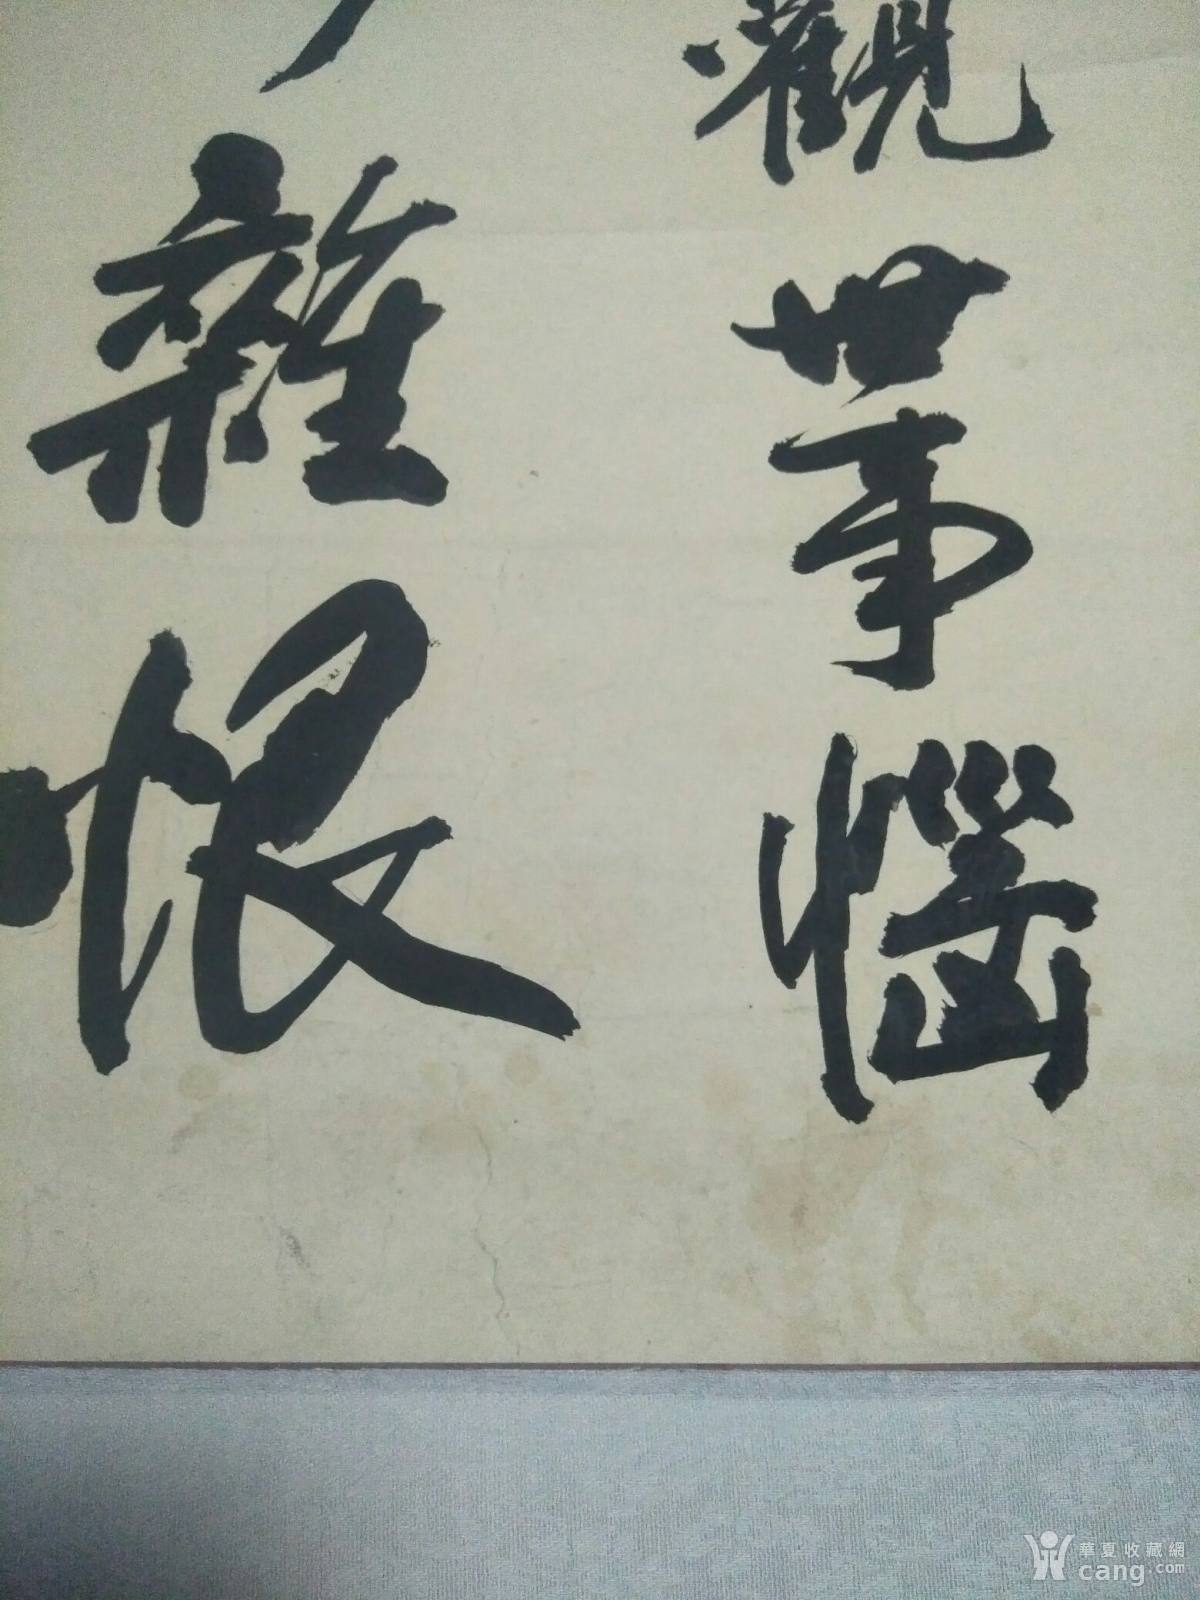 觀世事惱
雜恨
華夏收藏網
cang.com